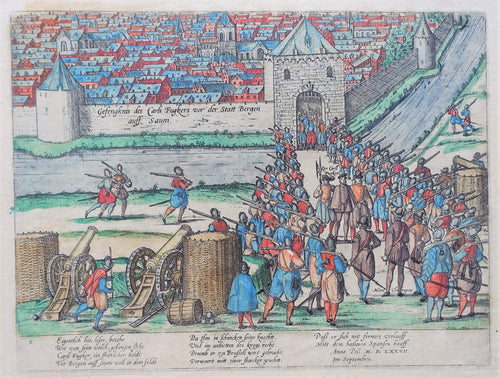 Gefengknis des Carls Fugkers vor der Statt Bergen
auff Saum.
Eigentlich hie, leser, besihe
Wie von sein volck gefangen
Carls Fugker, ein heldt
Vor Bergen auff saum woll in dem feldt
Da ihm in schencken seine knecht
Und im anboten des kregs recht
Drumb er zu Brussel wirt gebracht,
Verwaert mit einer starcker wacht
Daß er sich mit fernerß verlauff
Mit dem Spansch hauff.
Anno Dni M. D. LXXVII
im Septembris.